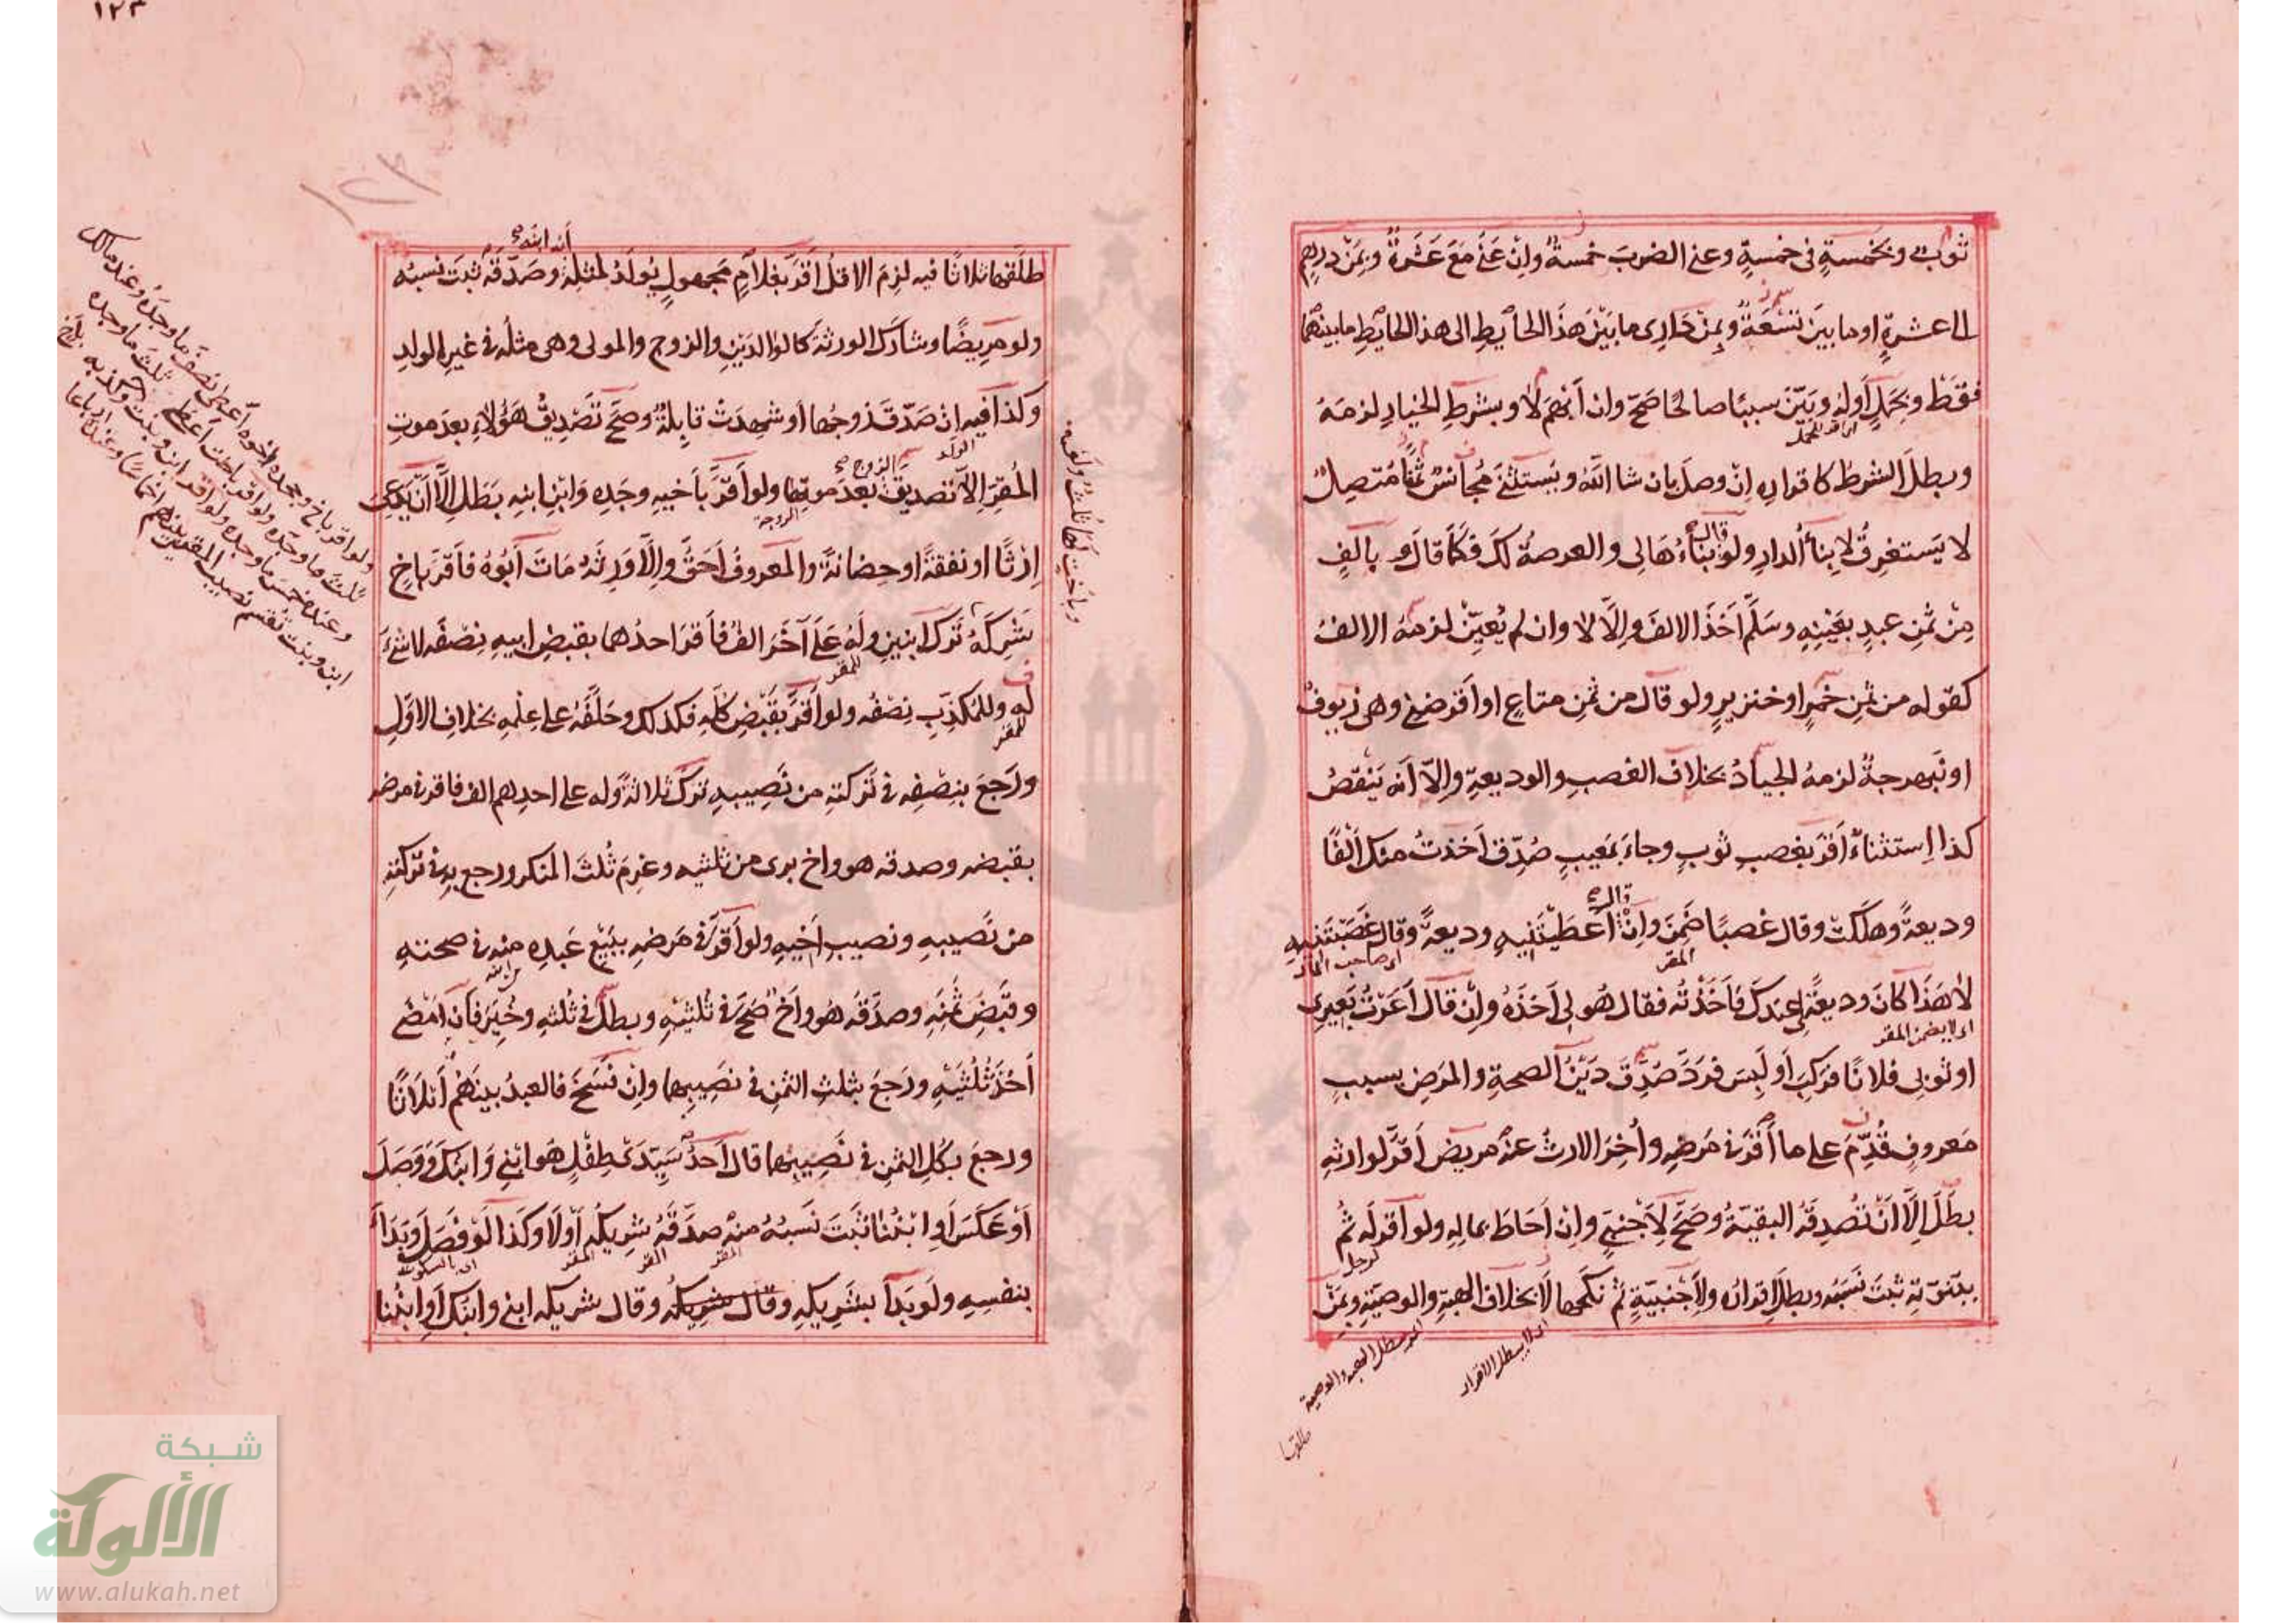 ثوب وبخمسةٍ في خمسةٍ وعنى الضربَ خمسةٌ وإن عَنَى مَعَ عَشَرةٌ ومِن درهمٍ
الى عشرةٍ او ما بينَ تسْعَةٌ ومِن دَارِى مابَيْنَ هَذَا الحايطِ الى هذا الحايطِ ما بينهما
فقَطْ وبحَملٍ أوله وبيّنَ سببًا صالحًا صَحَّ وان أبْهَمَ لا وبشرطِ الخيارِ لزمَهُ
اى اقر للحمل
وبطلَ الشرطُ كاقراره إنْ وصلَ بان شا اللّٰهُ ويستثنى مُجانسٌ ثمنًا مُتصِلٌ
لا يَستغرِقُ لا بناءُ الدارِ ولو قال بناءُهَا لى والعرصةُ لكَ فكمَا قالَ بالفٍ
مِنْ ثمنِ عبدٍ بعَيْنِهِ وسَلَّم أخَذَ الالفَ وإلّا لا وان لم يُعيِّنْ لزمَهُ الالفُ
كقوله من ثمنِ خمرٍ او خنزيرٍ ولو قال من ثمنِ متاعٍ او اقرضنى وهى زيوفٌ
او نَبهرجةٌ لزمهُ الجيادُ بخلاف الغصبِ والوديعةِ وإلّا أنه يَنْقصُ
كذا إستثناءً أقرَّ بغصبِ ثوبٍ وجاءَ بمَعِيبٍ صُدِّق أخذتُ منك ألفًا
وديعةً وهلكتْ وقال غصبًا ضَمِنَ وإن قال أعطيتَنِيهِ وديعةً وقال غَصَبْتَنِيهِ
المقر
لا هَذَا كانَ وديعَةً لى عِندكَ فأخَذْتُه فقال هُو لى أخَذَهُ وإنْ قال أعَرْتُ بَعِيرِى
اى لا يضمن المقر
او ثوبى فلانًا فركِبَ أو لَبِسَ فردَّ صُدِّقَ دَيْنُ الصحةِ والمرَضِ بسببٍ
مَعروفٍ قُدِّمَ على ما أقرَّ فى مَرضِهِ وأُخِرَ الارثُ عنه مريض أقرَّ لوارثهِ
بطَلَ إلّا أنْ تُصدِقَهُ البقيّةُ وصَحَّ لأجْنبِىٍّ وإنْ أحَاطَ بمالِهِ ولو أقرلَه ثُم
لرجل
ببنوّتِه ثبتَ نَسَبُه وبطلَ إقرارُه ولأجْنبيّةٍ ثُم نكَحَها لا بخلاف الهبةِ والوصيّةِ وبمَنْ
اى لا يبطل الاقرار
طلقها
أنه ابنه صح
طلّقها ثلاثًا فيه لزِمَ الاقلُّ أقرَّ بغلامٍ مَجهولٍ يُولَدُ لمثلِهِ وصَدّقَهُ ثبتَ نسبُه
ولو مريضًا وشارَكَ الورثةَ كالوالدَيْنِ والزوجِ والمولى وهى مثلُه فى غيرِ الولدِ
وكذا فيه إنْ صَدّقَهَا زوجُها أو شهِدَتْ قابِلةٌ وصَحَّ تصْدِيقُ هَؤُلاءِ بعدَ موتِ
الولد
المُقرِ إلّا تصديقَ الزوج صح بعدَ موتِها ولو أقرَّ بأخيهِ وجَدِهِ وَابْنِ ابنِهِ بَطَلَ إلّا أنْ يَدَّعِىَ
الزوجة
إرْثًا او نفقةً او حِضانةً والمعروفُ أحَقُّ وإلّا وَرِثَه مَاتَ أبُوهُ فأقرَّ باخٍ
شَرِكَهُ تَرَكَ ابنينِ ولَهُ عَلَى آخَرَ الفٌ فأقرَّ احدُهما بقبضِ ابيهِ نِصْفَه لا شئَ
للمقر
له وللمُكذِّبِ نِصْفُه ولو أقرَّ بقَبْضِ كلِّهِ فكذلك وحَلَّفَهُ على عِلْمِهِ بخلافِ الاوّلِ
للمقر
ورَجَعَ بنِصْفِه فى تَرِكتِه من نَصِيبِهِ تركَ ثلاثةً وله على احدِهم الف فاقر فى مرضه
بقبضه وصدقه هو واخ برى من ثلثيه وغرِمَ ثُلثَ المنكر ورجع به فى تركتِهِ
من نَصيبِهِ ونصيبِ أخيهِ ولو أقرَّ فى مَرضِهِ ببَيْعِ عَبدِه منه فى صحتهِ
من ابنه
وقَبْضِ ثَمنِه وصدَّقَه هُو وأخ صَحَّ فى ثُلثَيْهِ وبطلَ فى ثُلثهِ وخُيِّرَ فان أمْضَى
أخَذَ ثُلُثَيْهِ ورَجَعَ بثلثِ الثمنِ فى نصَيبِهِما وإنْ فسَخَ فالعبدُ بينَهُمْ أثلاثًا
ورجعَ بكُلِ الثمنِ فى نَصِيبِهِما قال أحَدُ سَيِّدَىْ طِفْلٍ هُوابْنِى وَابنكَ وَوَصَلَ
أوْ عَكَسَ أوِ ابْنُنا ثبَتَ نَسَبُهُ منه صدَّقَهُ شرِيكُه أوْلا وكَذا لَوْ فصَلَ وبَدَأَ
المقر المقر المقر اى بالسكوت
بنفسِهِ ولَو بَدَأَ بشَرِيكِهِ وقال شريكُه وقال شريكه ابنى وابنك أوِ ابْنُنا
ولو اقر باخ وجحده اخوه أعطى نصفَ ما وجَدَه وعند مالك
ثلثَ ما وجَدَه ولو اقر باخت اعطى ثلثَ ما وجده
وعنده خمسَ ما وجده ولو اقر ابن وبنت وكذبه
ابن وبنت يُقسم نصيب المقرين
شبكة
الألوكة
www.alukah.net